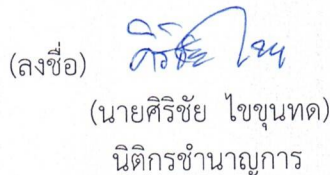 (ลงชื่อ) ศิริชัย ไข
(นายศิริชัย ไขขุนทด)
นิติกรชำนาญการ